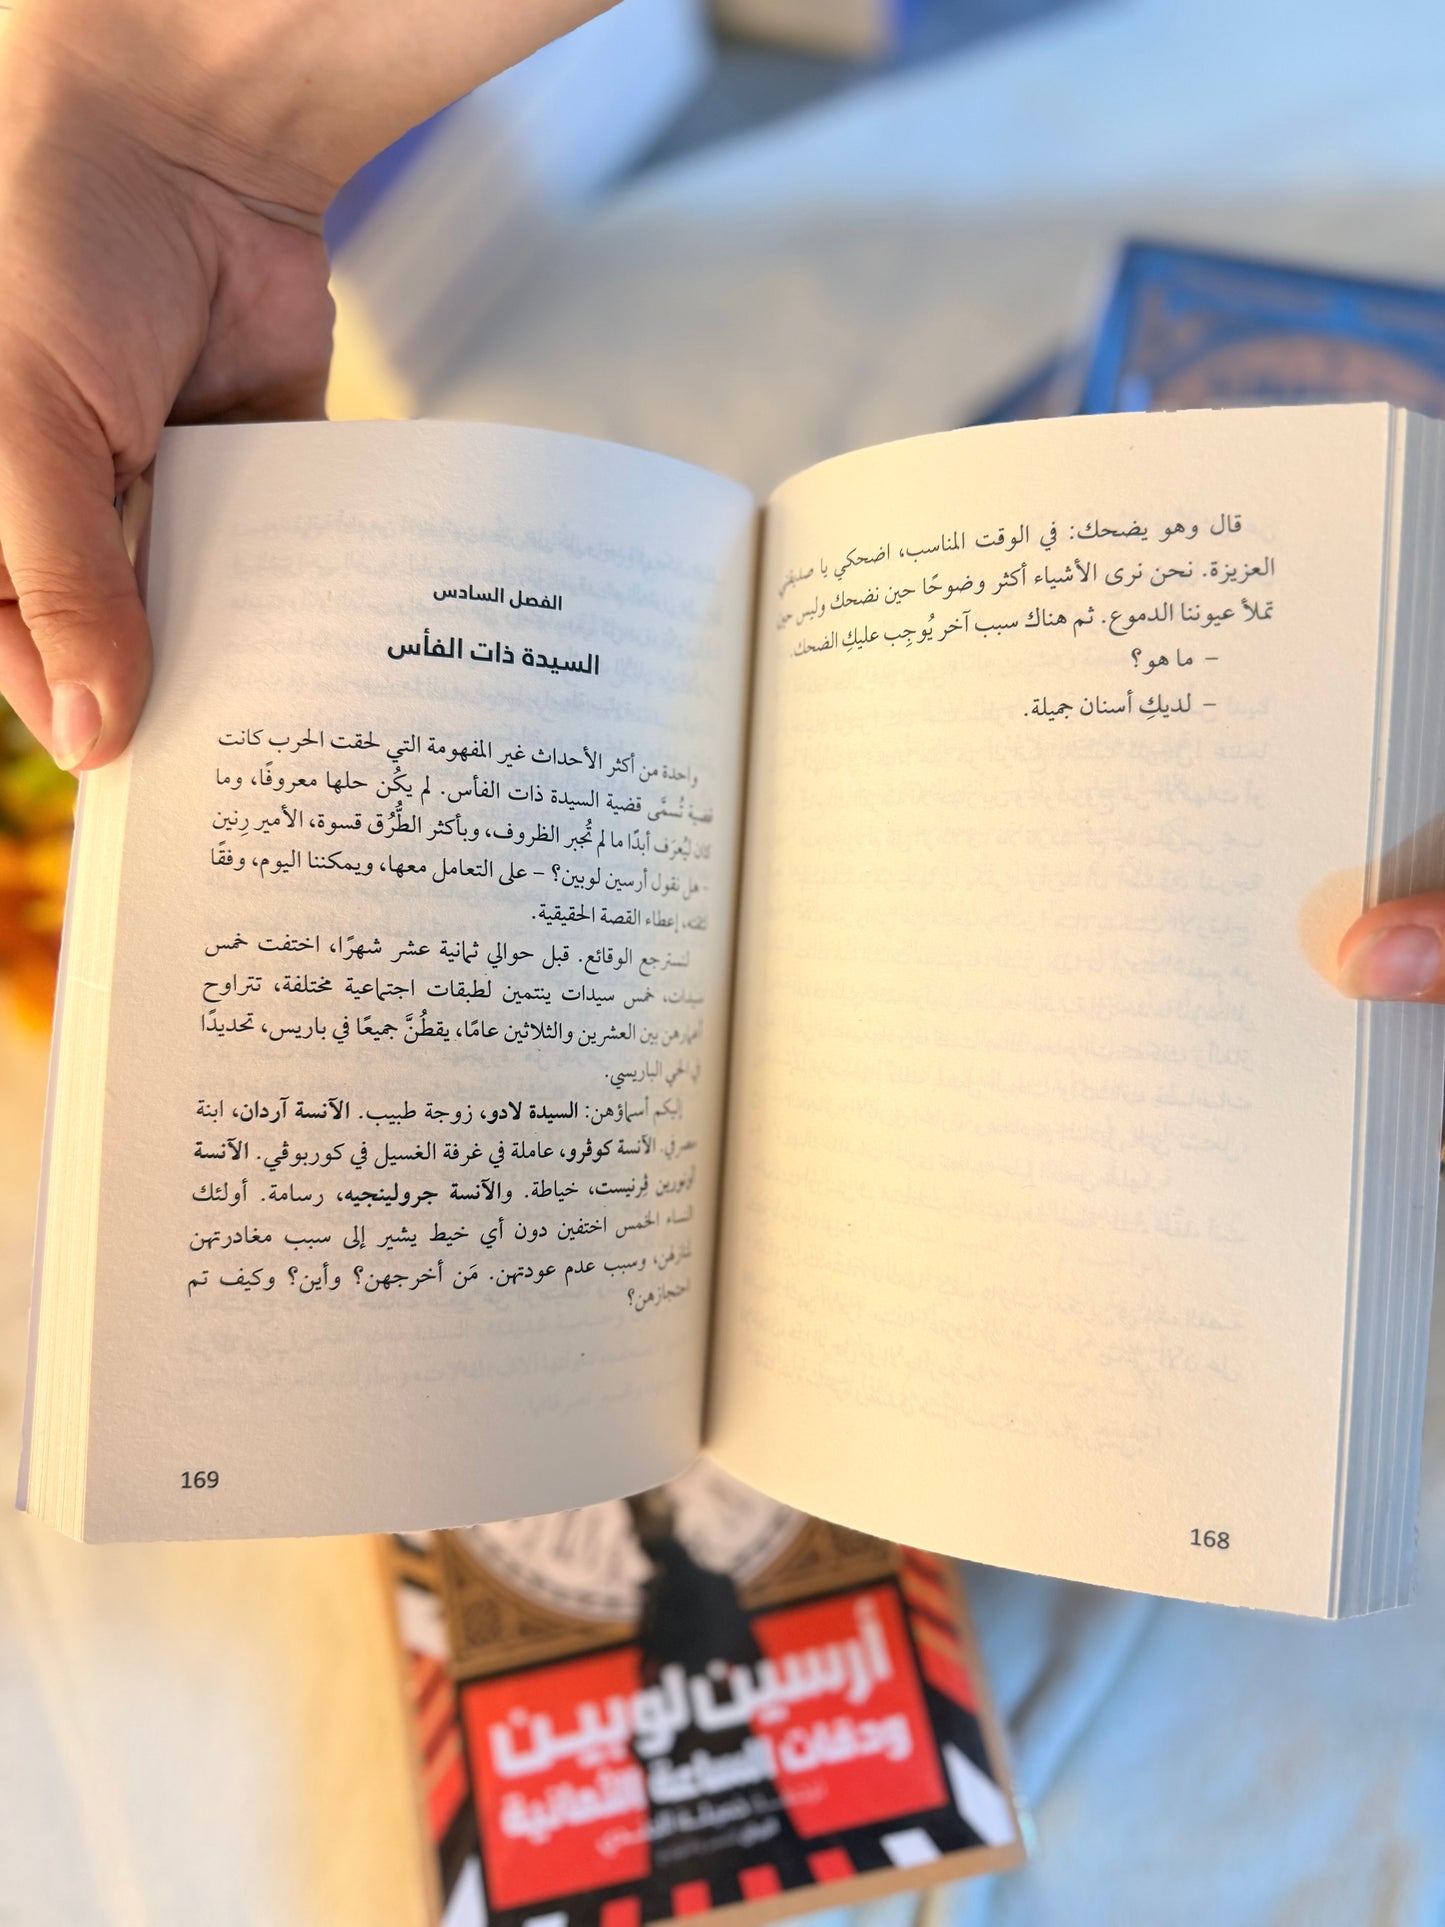 قال وهو يضحك: في الوقت المناسب، اضحكي يا صديقتي
العزيزة. نحن نرى الأشياء أكثر وضوحًا حين نضحك وليس حين
تملأ عيوننا الدموع. ثم هناك سبب آخر يُوجِب عليكِ الضحك.
– ما هو؟
– لديكِ أسنان جميلة.
168
الفصل السادس
السيدة ذات الفأس
واحدة من أكثر الأحداث غير المفهومة التي لحقت الحرب كانت
قضية تُسمَّى قضية السيدة ذات الفأس. لم يكُن حلها معروفًا، وما
كان ليُعرَف أبدًا ما لم تُجبر الظروف، وبأكثر الطُّرُق قسوة، الأمير رِنين
– هل نقول أرسين لوبين؟ – على التعامل معها، ويمكننا اليوم، وفقًا
إعطاء القصة الحقيقية.
لنسترجع الوقائع. قبل حوالي ثمانية عشر شهرًا، اختفت خمس
سيدات، خمس سيدات ينتمين لطبقات اجتماعية مختلفة، تتراوح
أعمارهن بين العشرين والثلاثين عامًا، يقطُنَّ جميعًا في باريس، تحديدًا
في الحي الباريسي.
إليكم أسماؤهن: السيدة لادو، زوجة طبيب. الآنسة آردان، ابنة
مصرفي. الآنسة كوڤرو، عاملة في غرفة الغسيل في كوربوڤي. الآنسة
أونورين ڤِرنيست، خياطة. والآنسة جرولينجيه، رسامة. أولئك
النساء الخمس اختفين دون أي خيط يشير إلى سبب مغادرتهن
لمنازلهن، وسبب عدم عودتهن. مَن أخرجهن؟ وأين؟ وكيف تم
احتجازهن؟
169
أرسين لوبين
ودقات الساعة الثمانية